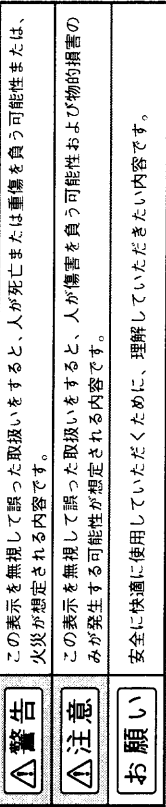 ⚠警告
この表示を無視して誤った取扱いをすると、人が死亡または重傷を負う可能性または、
火災が想定される内容です。
⚠注意
この表示を無視して誤った取扱いをすると、人が傷害を負う可能性および物的損害の
みが発生する可能性が想定される内容です。
お願い
安全に快適に使用していただくために、理解していただきたい内容です。